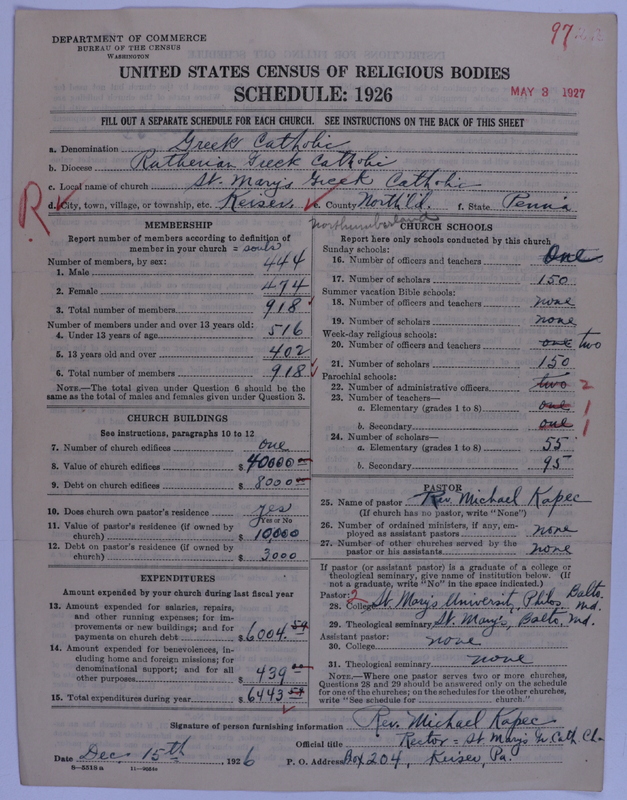 97
DEPARTMENT OF COMMERCE
BUREAU OF THE CENSUS
WASHINGTON
UNITED STATES CENSUS OF RELIGIOUS BODIES
SCHEDULE: 1926
MAY 3 1927
FILL OUT A SEPARATE SCHEDULE FOR EACH CHURCH. SEE INSTRUCTIONS ON THE BACK OF THIS SHEET
a. Denomination Greek Catholic
b. Diocese Ruthenian Greek Catholic
c. Local name of church St. Mary's Greek Catholic
R
d. City, town, village, or township, etc. Keiser, e. County North'l'd. f. State Penna
Northumberland
MEMBERSHIP
Report number of members according to definition of
member in your church = souls
Number of members, by sex:
1. Male 444
2. Female 474
3. Total number of members 918
Number of members under and over 13 years old:
4. Under 13 years of age 516
5. 13 years old and over 402
6. Total number of members 918
NOTE.—The total given under Question 6 should be the
same as the total of males and females given under Question 3.
CHURCH BUILDINGS
See instructions, paragraphs 10 to 12
7. Number of church edifices one
8. Value of church edifices $ 40000 00
9. Debt on church edifices $ 8000 00
10. Does church own pastor's residence? yes
Yes or No
11. Value of pastor's residence (if owned by
church) $ 10,000
12. Debt on pastor's residence (if owned by
church) $ 3000
EXPENDITURES
Amount expended by your church during last fiscal year
13. Amount expended for salaries, repairs,
and other running expenses; for im-
provements or new buildings; and for
payments on church debt $ 6004. 54
14. Amount expended for benevolences, in-
cluding home and foreign missions; for
denominational support; and for all
other purposes $ 439 00
15. Total expenditures during year $ 6443 54
CHURCH SCHOOLS
Report here only schools conducted by this church
Sunday schools:
16. Number of officers and teachers One
17. Number of scholars 150
Summer vacation Bible schools:
18. Number of officers and teachers none
19. Number of scholars none
Week-day religious schools:
20. Number of officers and teachers one two
21. Number of scholars 150
Parochial schools:
22. Number of administrative officers two 2
23. Number of teachers—
a. Elementary (grades 1 to 8) one 1
b. Secondary one 1
24. Number of scholars—
a. Elementary (grades 1 to 8) 55
b. Secondary 95
PASTOR
25. Name of pastor Rev. Michael Kapec
(If church has no pastor, write "None")
26. Number of ordained ministers, if any, em-
ployed as assistant pastors none
27. Number of other churches served by the
pastor or his assistants none
If pastor (or assistant pastor) is a graduate of a college or
theological seminary, give name of institution below. (If
not a graduate, write "No" in the space indicated.)
Pastor: 2
28. College St. Mary's University, Philos. Balto. Md.
29. Theological seminary St. Mary's, Balto, Md.
Assistant pastor:
30. College none
31. Theological seminary none
NOTE.—Where one pastor serves two or more churches,
Questions 28 and 29 should be answered only on the schedule
for one of the churches; on the schedules for the other churches,
write "See schedule for church."
Signature of person furnishing information Rev. Michael Kapec
Official title Rector = St. Mary's Gr. Cath. Ch.
Date Dec. 15th, 1926 P. O. Address Box 204, Keiser, Pa.
8—5518a 11—9064a